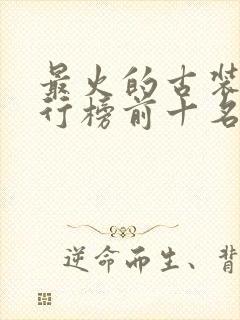 最火的古装
行榜前十名
逆命而生、背